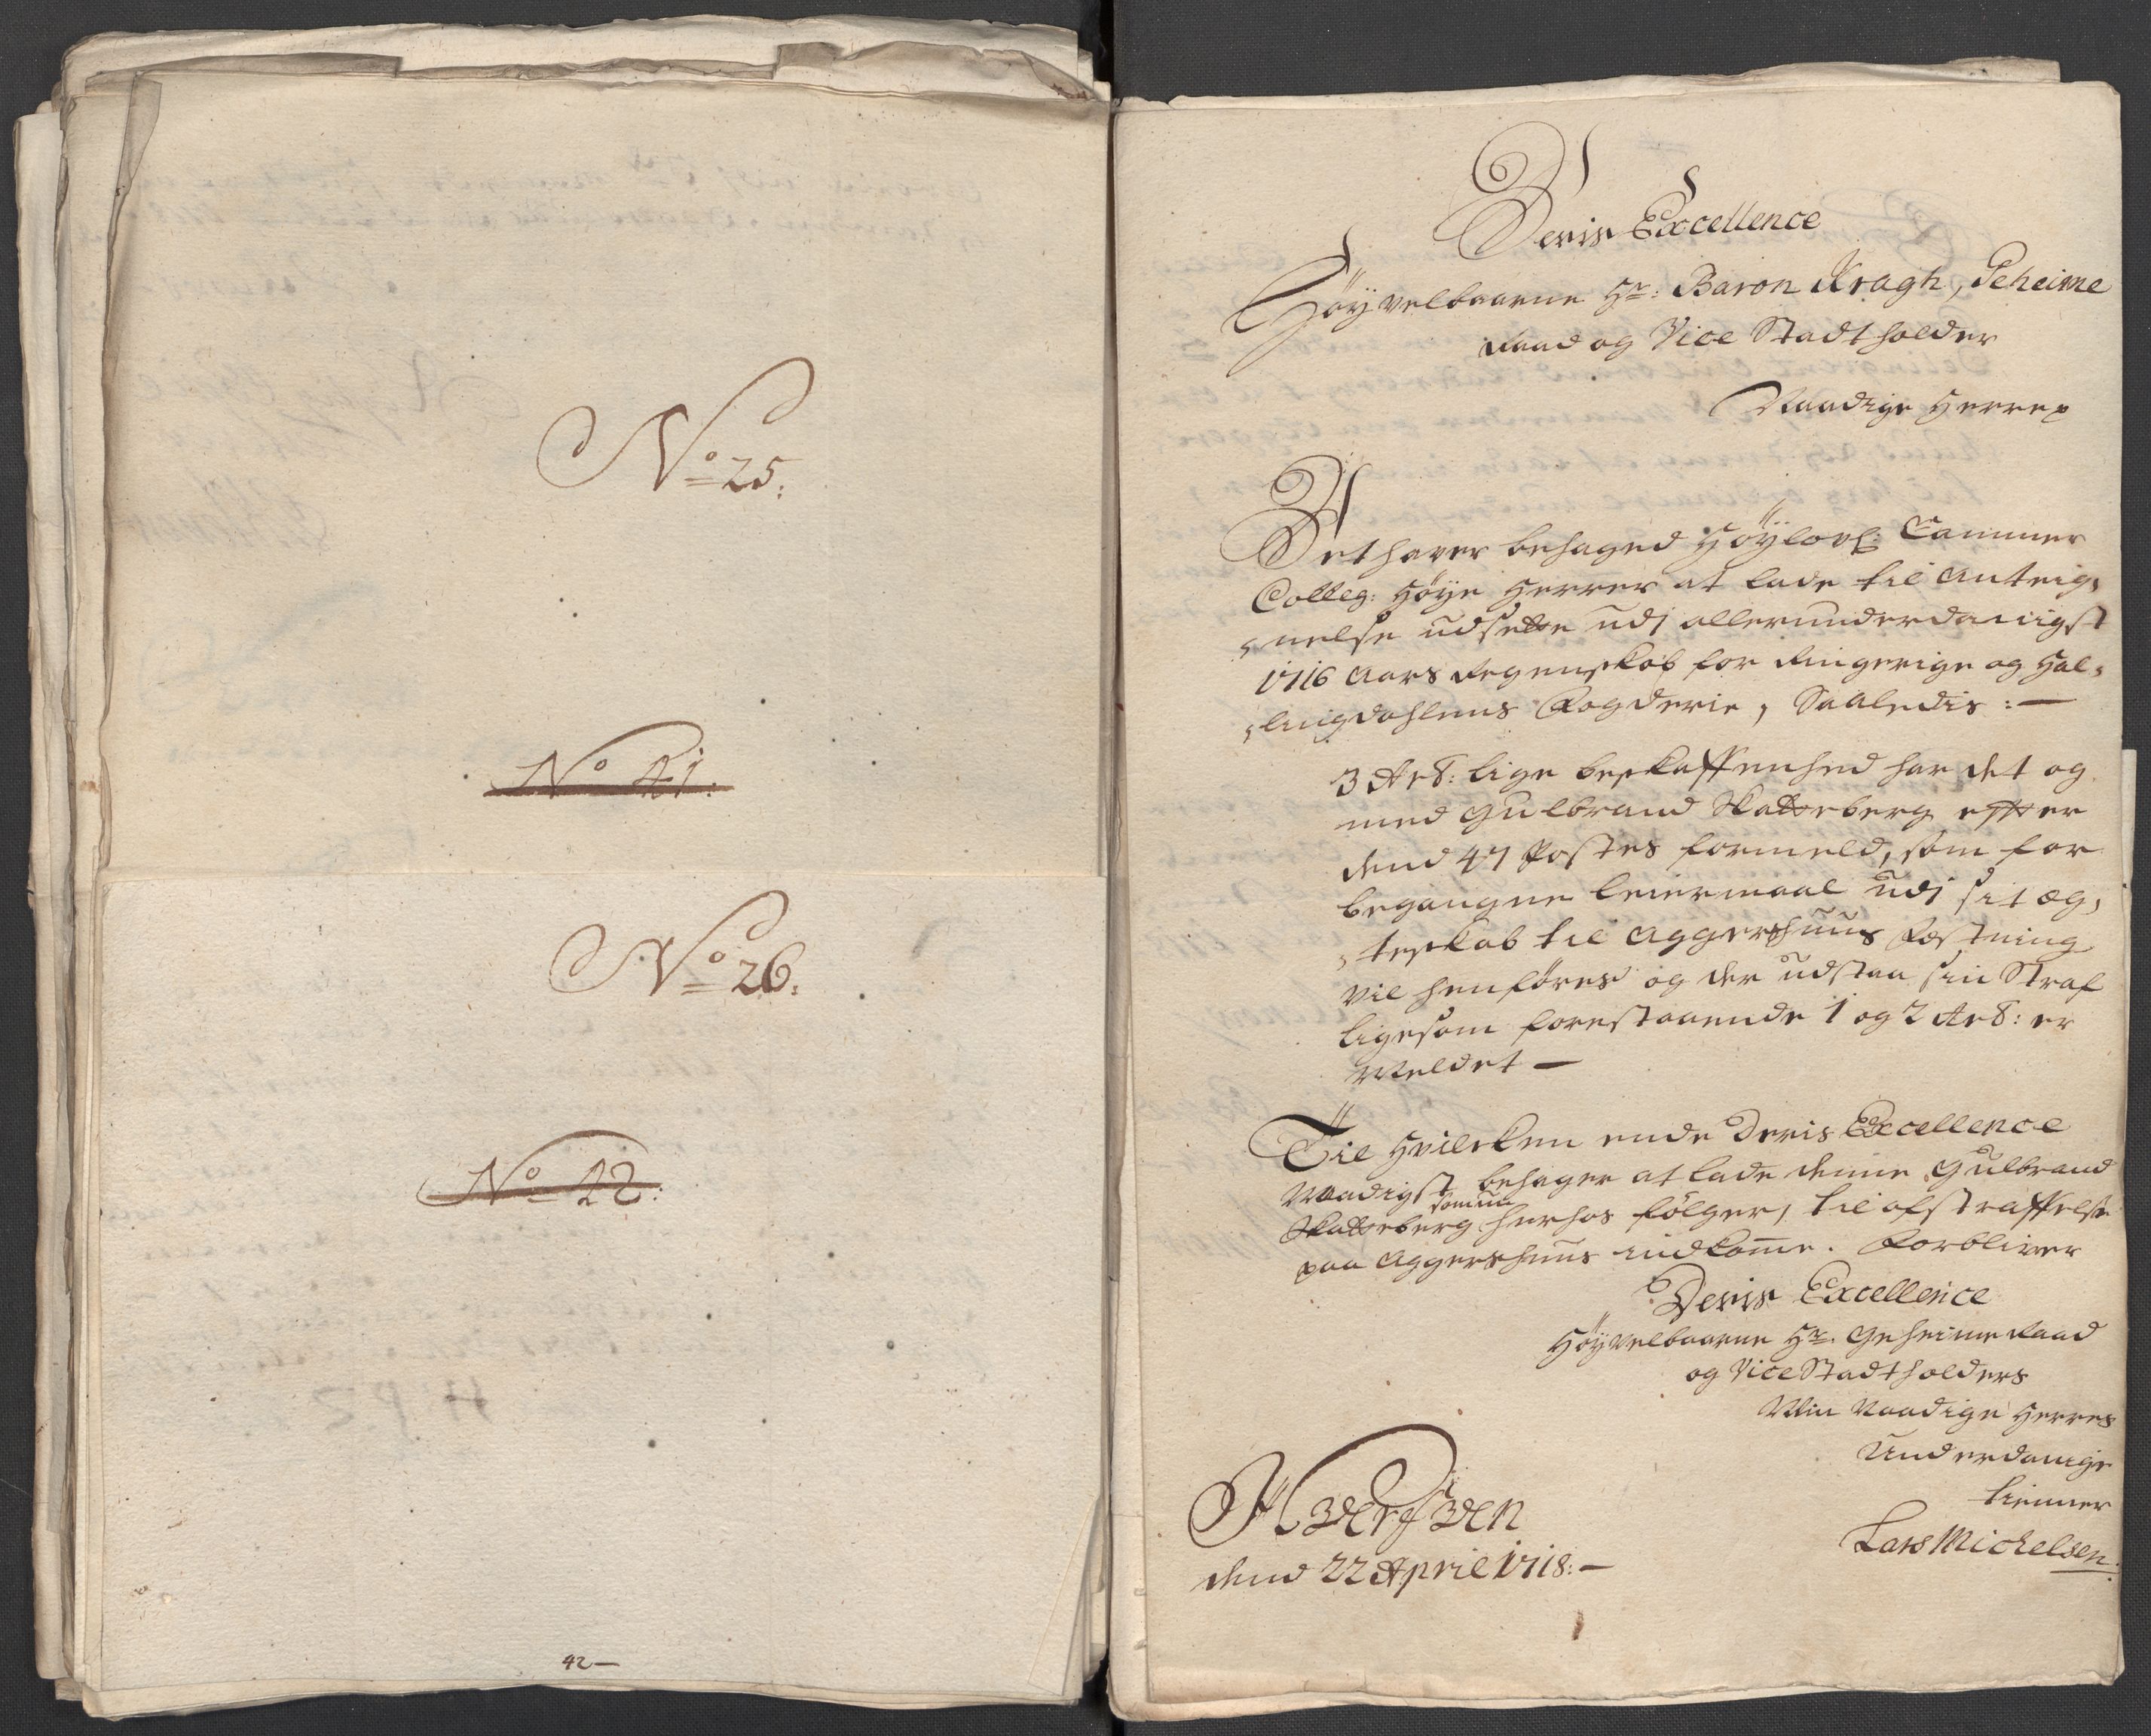 No 25:
No 41:
No 26:
No 42:
42 —
Deris Excellence
Höÿvelbaarne Hr: Baron Kragh, Geheime
Raad og Vice Stadtholder
Naadige Herre
Det haver behaged Höÿlovl: Cammer
Colleg: Höÿe Herrer at lade til Anteig,
,nelse udsette udj allerunderdanigst
1716 Aars Regenskab for Ringerige og Hal,
,lingdahlens Fogderie, Saaledis: —
3 Art: lige beskaffenhed har det og
med Gulbrand Skatteberg efter
dend 47 Postes formeld, som for
begangne Leiermaal udj sit æg,
,teskab til Aggershuus Fæstning
vil henföres og der udstaa sin Straf
ligesom forestaaende 1 og 2 Art: er
Meldet —
Til hvilcken ende Deris Excellence
Naadigst behager at lade denne Gulbrand
Skatteberg somm herhos følger, til afstraffelse
paa Aggershuus indkomme. Forbliver
Deris Excellence
Höÿvelbaarne Hr. Geheime Raad
og Vice Stadtholders
Min Naadige Herres
Underdanige
tienner
Lars Michelsen
dend 22 April 1718: —